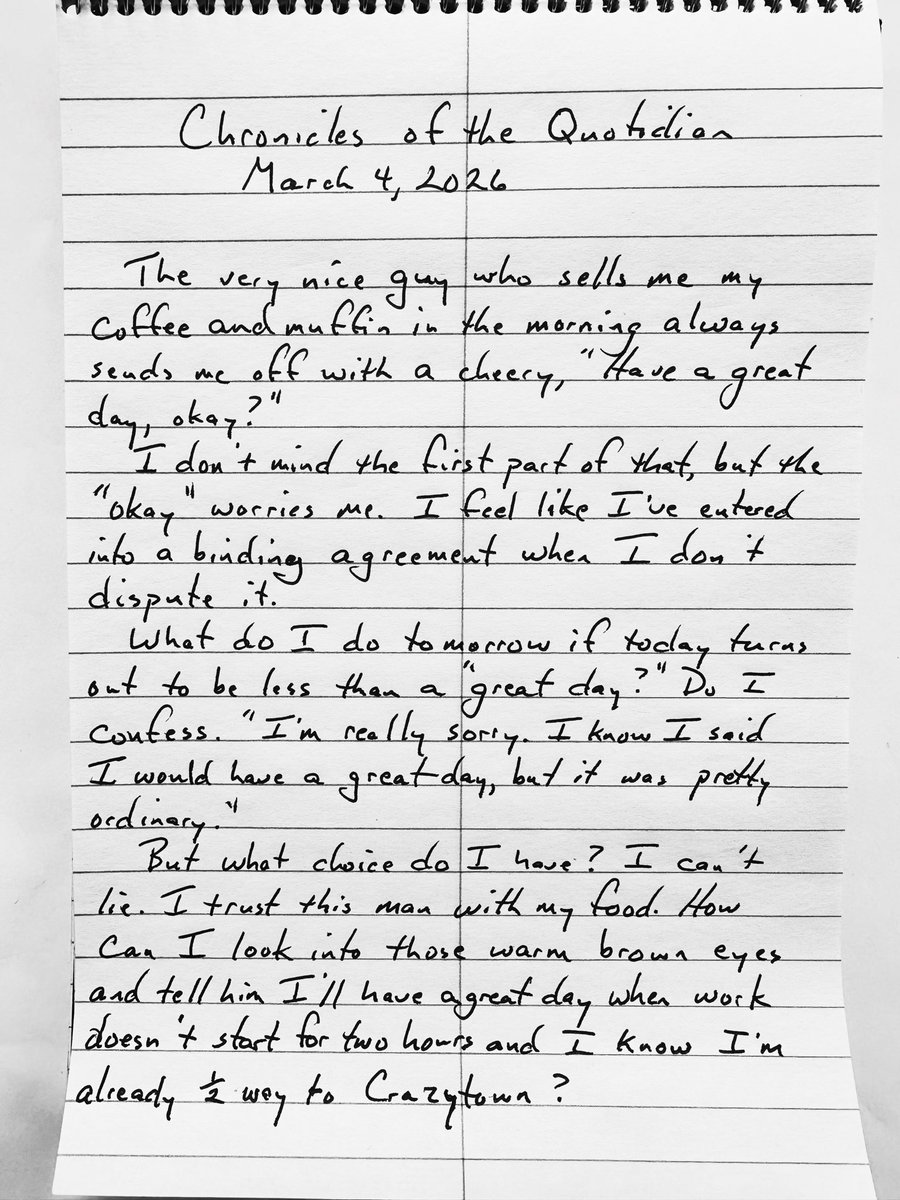 Chronicles of the Quotidian
March 4, 2026
The very nice guy who sells me my
coffee and muffin in the morning always
sends me off with a cheery, "Have a great
day, okay?"
I don't mind the first part of that, but the
"okay" worries me. I feel like I've entered
into a binding agreement when I don't
dispute it.
What do I do tomorrow if today turns
out to be less than a "great day?" Do I
confess. "I'm really sorry. I know I said
I would have a great day, but it was pretty
ordinary."
But what choice do I have? I can't
lie. I trust this man with my food. How
can I look into those warm brown eyes
and tell him I'll have a great day when work
doesn't start for two hours and I know I'm
already ½ way to Crazytown?